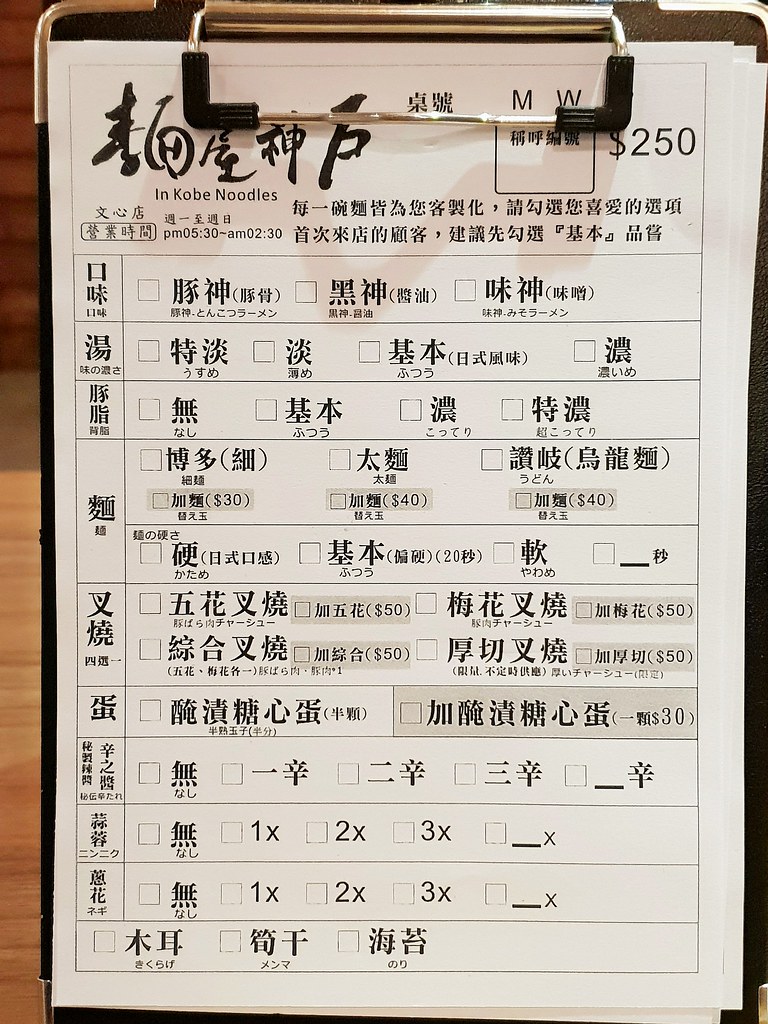 桌號 M W
麵屋神戶 稱呼編號 $250
In Kobe Noodles
文心店 週一至週日
營業時間 pm05:30~am02:30
每一碗麵皆為您客製化，請勾選您喜愛的選項
首次來店的顧客，建議先勾選『基本』品嘗
口味 □ 豚神(豚骨) □ 黑神(醬油) □ 味神(味噌)
口味 豚神-とんこつラーメン 黒神-醤油 味神-みそラーメン
湯 □ 特淡 □ 淡 □ 基本(日式風味) □ 濃
味の濃さ うすめ 薄め ふつう 濃いめ
豚脂 □ 無 □ 基本 □ 濃 □ 特濃
背脂 なし ふつう こってり 超こってり
麵 □ 博多(細) □ 太麵 □ 讚岐(烏龍麵)
麺 細麺 太麺 うどん
□ 加麵($30) □ 加麵($40) □ 加麵($40)
替え玉 替え玉 替え玉
麺の硬さ
□ 硬(日式口感) □ 基本(偏硬)(20秒) □ 軟 □ __秒
かため ふつう やわめ
叉燒 □ 五花叉燒 □ 加五花($50) □ 梅花叉燒 □ 加梅花($50)
豚ばら肉チャーシュー 豚肉チャーシュー
四選一 □ 綜合叉燒 □ 加綜合($50) □ 厚切叉燒 □ 加厚切($50)
(五花、梅花各一)豚ばら肉、豚肉*1 (限量.不定時供應) 厚いチャーシュー(限定)
蛋 □ 醃漬糖心蛋(半顆) □ 加醃漬糖心蛋(一顆$30)
半熟玉子(半分)
秘製辣醬 辛之醬 □ 無 □ 一辛 □ 二辛 □ 三辛 □ __辛
秘伝辛たれ なし
蒜蓉 □ 無 □ 1x □ 2x □ 3x □ __x
ニンニク なし
蔥花 □ 無 □ 1x □ 2x □ 3x □ __x
ネギ なし
□ 木耳 □ 筍干 □ 海苔
きくらげ メンマ のり